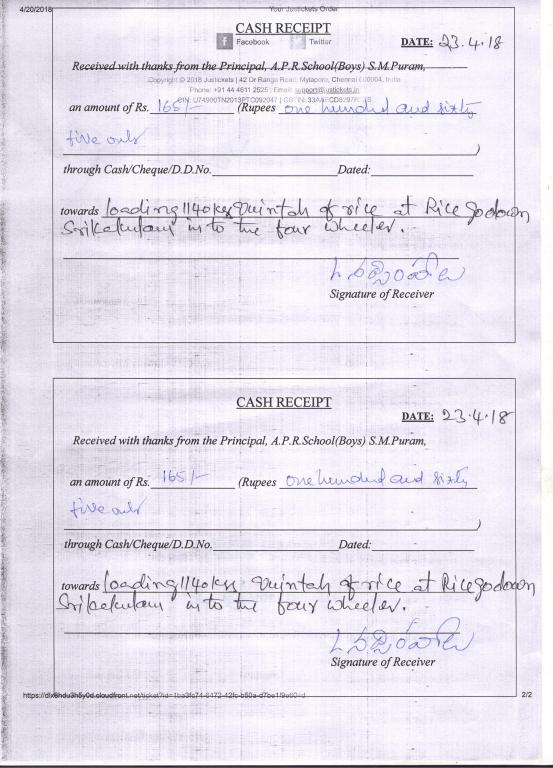 4/20/2018 Your Justickets Order
CASH RECEIPT
Facebook Twitter
DATE: 23.4.18
Received with thanks from the Principal, A.P.R.School(Boys) S.M.Puram,
Copyright © 2018 Justickets | 42 Dr Ranga Road, Mylapore, Chennai 600004, India
Phone: +91 44 4611 2525 | Email: support@justickets.in
an amount of Rs. 165/- (Rupees one hundred and sixty
five only
)
through Cash/Cheque/D.D.No. Dated:
towards loading 1140 kgs Quintah of rice at Rice godown
Srikakulam in to the four wheeler.
Signature of Receiver
CASH RECEIPT
DATE: 23.4.18
Received with thanks from the Principal, A.P.R.School(Boys) S.M.Puram,
an amount of Rs. 165/- (Rupees one hundred and sixty
five only
)
through Cash/Cheque/D.D.No. Dated:
towards loading 1140 kgs Quintah of rice at Rice godown
Srikakulam in to the four wheeler.
Signature of Receiver
2/2